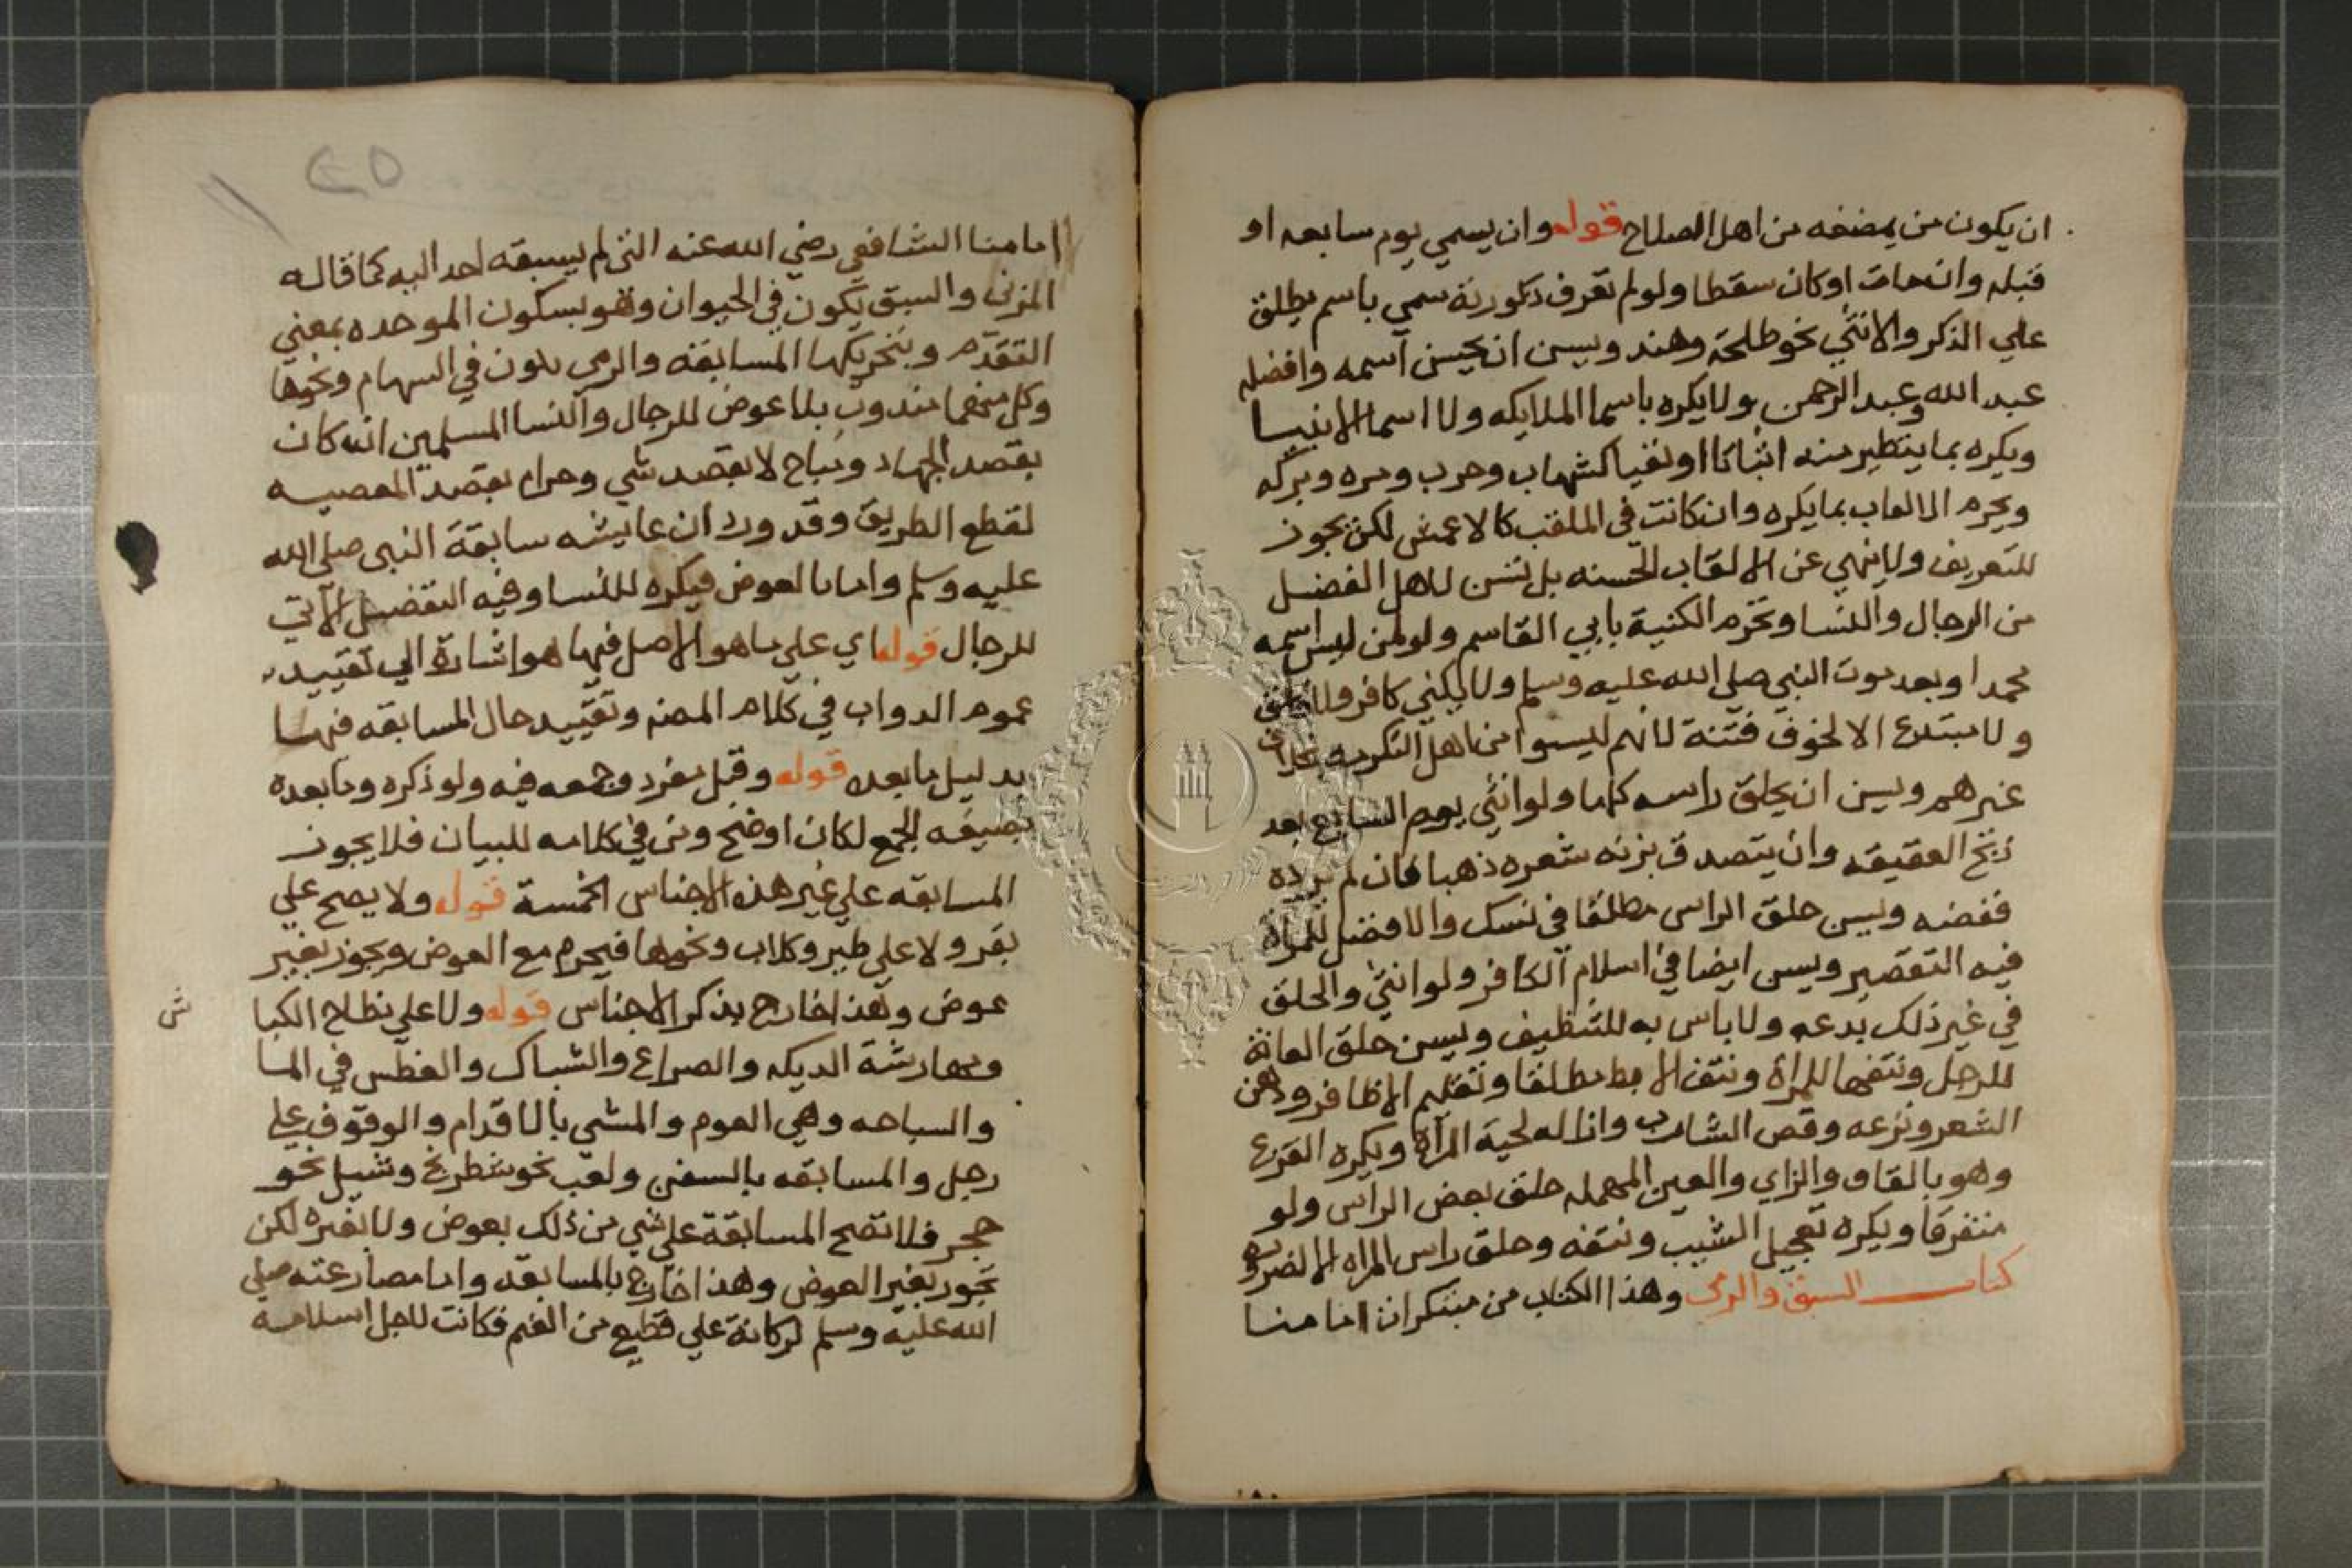 ان يكون من يمضغه من اهل الصلاح قوله وان يسمي يوم سابعه او
قبله وان مات او كان سقطا ولو لم تعرف ذكورية سمي باسم يطلق
علي الذكر والانثي نحو طلحة وهند ويسن ان يحسن اسمه وافضله
عبد الله وعبد الرحمن ولا يكره باسما الملايكه ولا اسما الانبيا
ويكره بما يتطير منه اثباتا او نفيا كشهاب وحرب ومره وبركه
ويحرم الالقاب بما يكره وان كانت في الملقب كالاعمش لكن يجوز
للتعريف ولا ينهي عن الالقاب الحسنه بل تسن لاهل الفضل
من الرجال والنسا وتحرم الكنية بابي القاسم ولو لمن ليس اسمه
محمدا وبعد موت النبي صلي الله عليه وسلم ولا يكني كافر ولا فاسق
ولا مبتدع الا لخوف فتنة لانهم ليسوا من اهل التكرمه بخلاف
غيرهم ويسن ان يحلق راسه كلها ولو انثي يوم السابع بعد
ذبح العقيقه وان يتصدق بزنه شعره ذهبا فان لم يرده
ففضه ويسن حلق الراس مطلقا في نسك والافضل للمراه
فيه التقصير ويسن ايضا في اسلام الكافر ولو انثي والحلق
في غير ذلك بدعه ولا باس به للتنظيف ويسن حلق العانة
للرجل ونتفها للمراة ونتف الابط مطلقا وتقليم الاظافر ودهن
الشعر ونزعه وقص الشارب وازاله لحية المراة ويكره القزع
وهو بالقاف والزاي والعين المهمله حلق بعض الراس ولو
متفرقا ويكره تعجيل الشيب ونتفه وحلق راس المراه الا لضرورة
كتاب السبق والرمي وهذا الكتاب من مبتكرات امامنا
امامنا الشافعي رضي الله عنه التي لم يسبقه احد اليه كما قاله
المزني والسبق يكون في الحيوان وهو بسكون الموحده بمعني
التقدم وبتحريكها المسابقة والرمي يكون في السهام ونحوها
وكل منهما مندوب بلا عوض للرجال والنسا المسلمين انه كان
بقصد الجهاد ومباح لا بقصد شي وحرام بقصد المعصيه
لقطع الطريق وقد ورد ان عايشه سابقة النبي صلي الله
عليه وسلم واما بالعوض فيكره للنسا وفيه التفضيل الآتي
للرجال قوله اي علي ما هو الاصل فيها هو اشارة الي تقييد
عموم الدواب في كلام المصنه وتقييد حال المسابقه فيها
بدليل ما بعده قوله وقبل مفرد وجمعه فيه ولو ذكره وما بعده
بصيغه الجمع لكان اوضح ومن في كلامه للبيان فلا يجوز
المسابقه علي غير هذه الاجناس الخمسة قوله ولا يصح علي
بقر ولا علي طير وكلاب ونحوها فيحرم مع العوض ويجوز بغير
عوض وهذا خارج بذكر الاجناس قوله ولا علي نطاح الكبا
ش
ومهارشة الديكه والصراع والشباك والغطس في الما
والسباحه وهي العوم والمشي بالاقدام والوقوف علي
رجل والمسابقه بالسفن ولعب نحو شطرنج وشيل نحو
حجر فلا تصح المسابقة علي شي من ذلك بعوض ولا بغيره لكن
تجوز بغير العوض وهذا خارج بالمسابقه واما مصارعته صلي
الله عليه وسلم لركانة علي قطيع من الغنم فكانت لاجل اسلامه